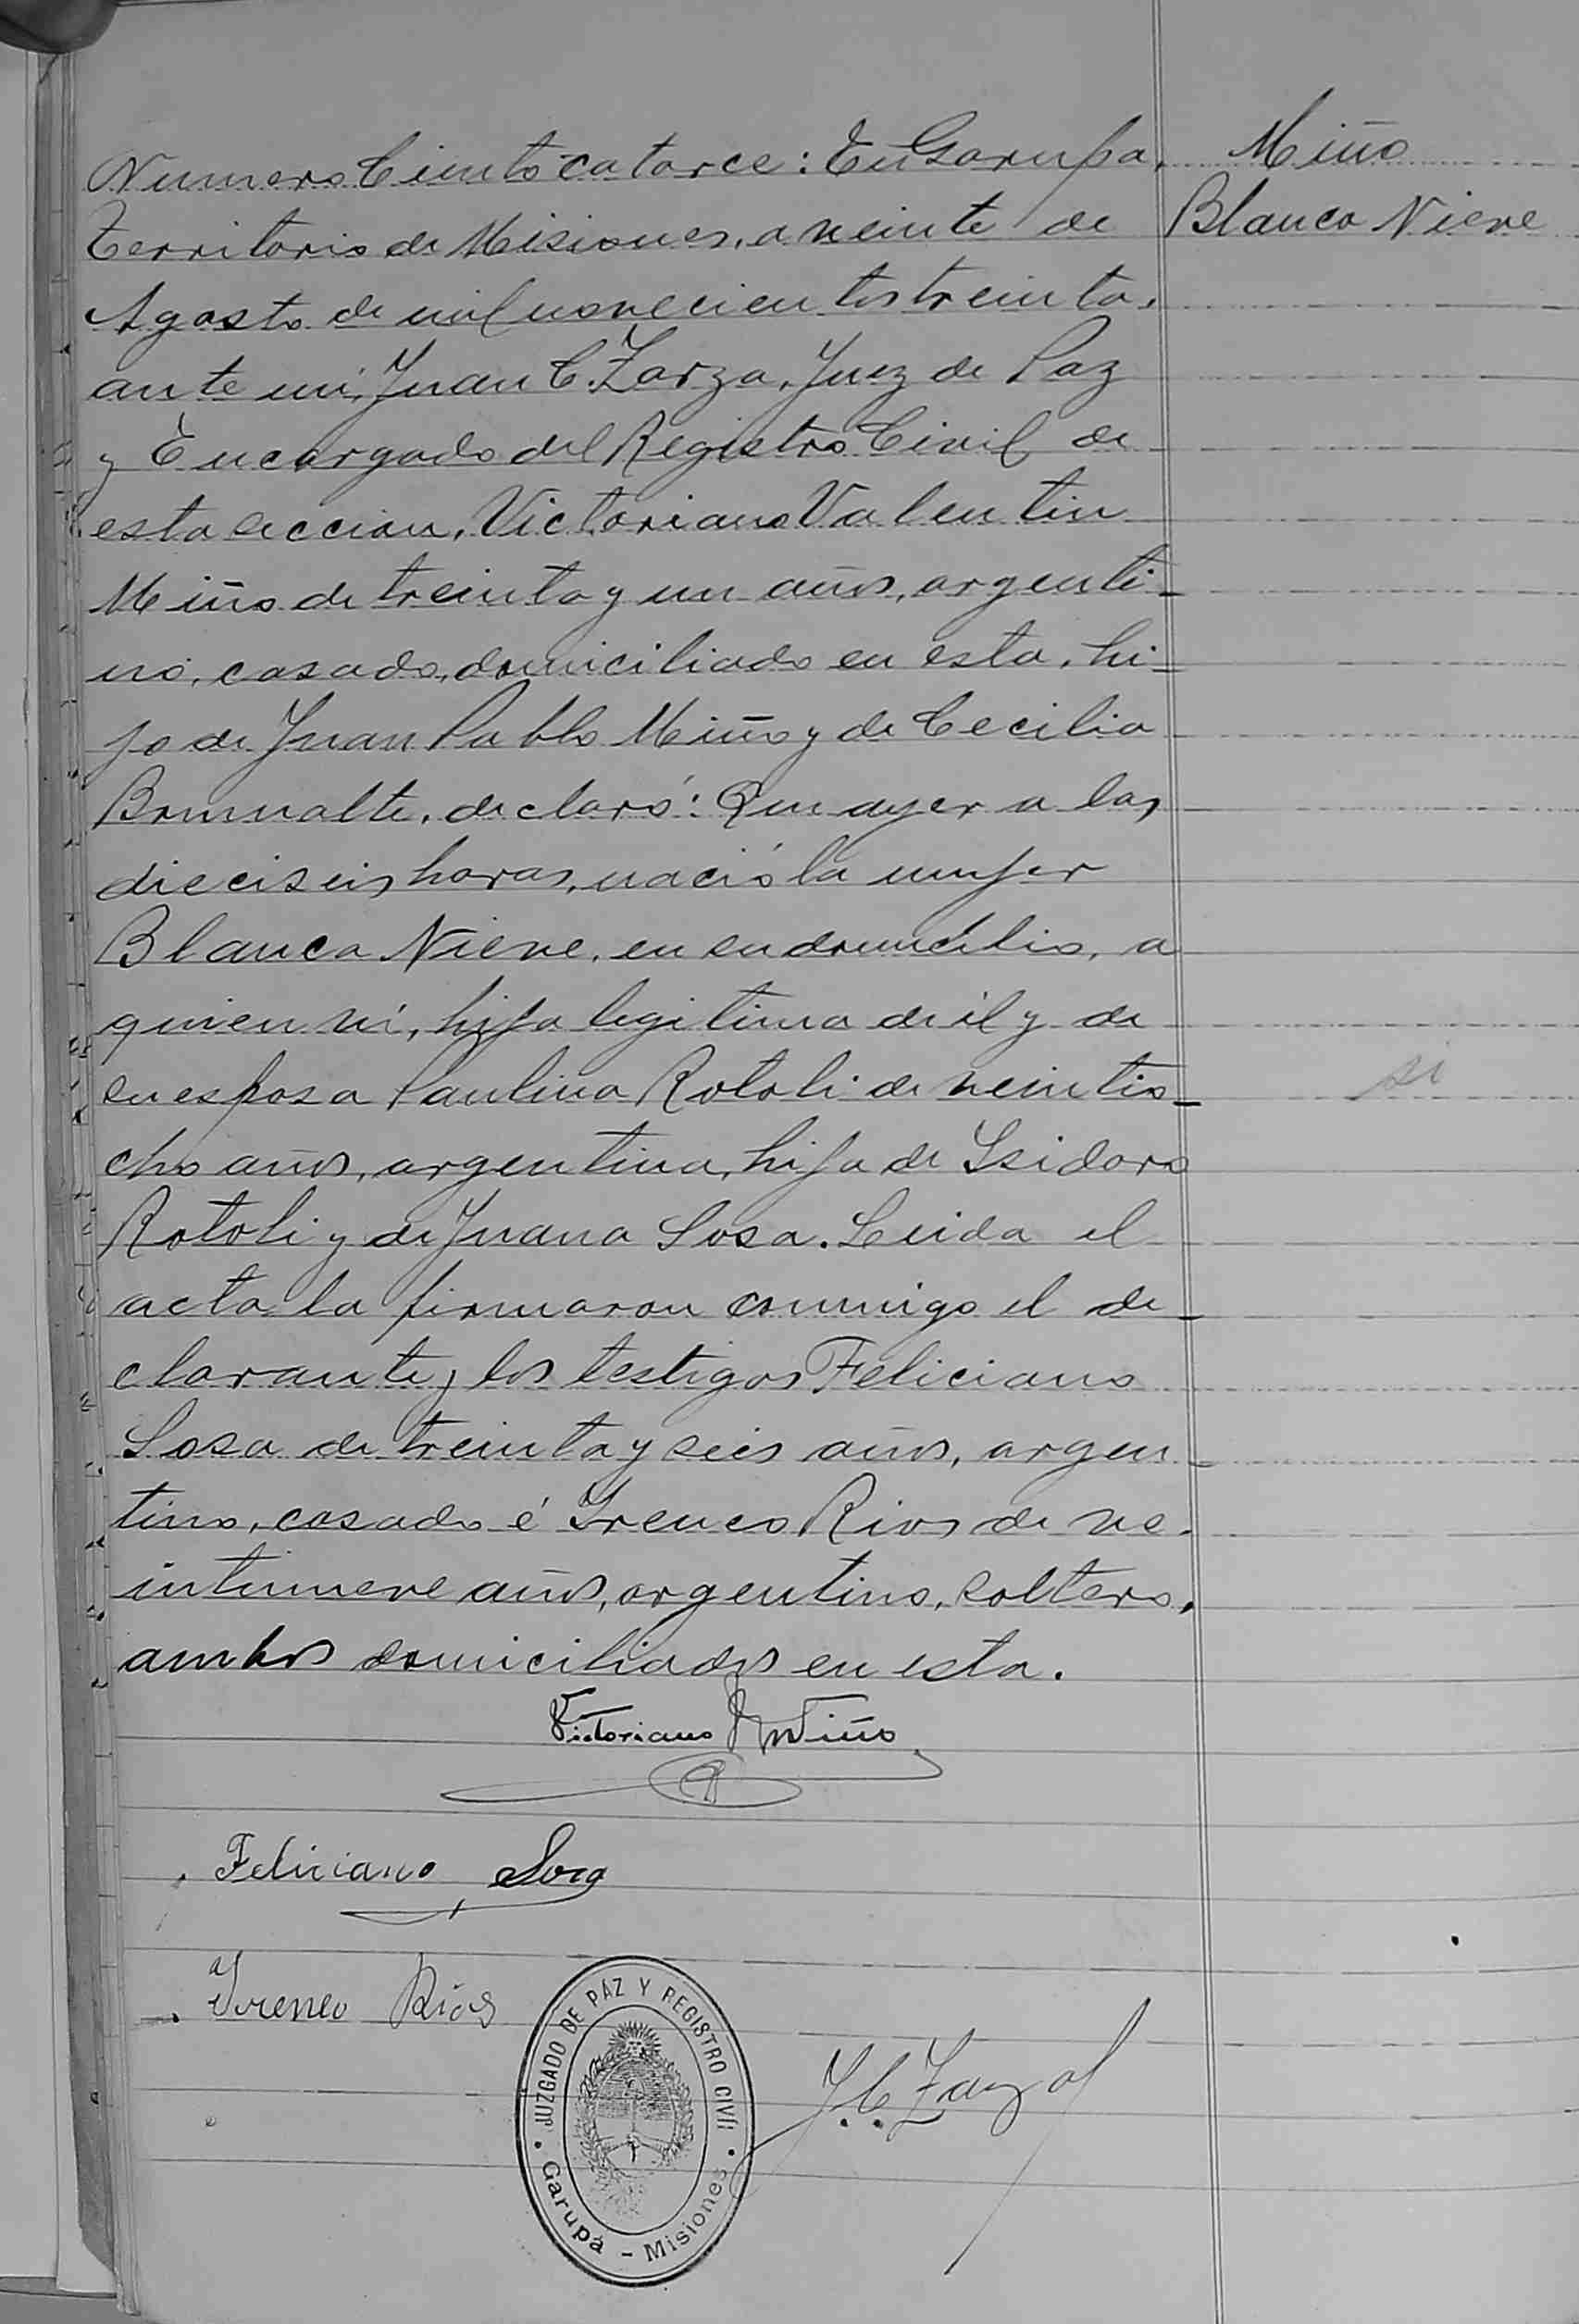 Numero Ciento catorce: En Garupa,
Miño
Territorio de Misiones, a veinte de
Blanca Nieve
Agosto de mil novecientos treinta,
ante mi, Juan C. Zarza, Juez de Paz
y Encargado del Registro Civil de
esta seccion, Victoriano Valentin
Miño de treinta y un años, argenti-
no, casado, domiciliado en esta, hi-
jo de Juan Pablo Miño y de Cecilia
declaró: Que ayer a las
dieciseis horas, nació la mujer
Blanca Nieve, en su domicilio, a
quien vi, hija legitima de él y de
su esposa Paulina Rotoli de veintio-
si
cho años, argentina, hija de Isidoro
Rotoli y de Juana Sosa. Leida el
acta la firmaron conmigo el de-
clarante y los testigos Feliciano
Sosa de treinta y seis años, argen
tino, casado é Ireneo Rios de ve-
intinueve años, argentino, soltero,
ambos domiciliados en esta.
Victoriano Miño
Feliciano Sosa
Ireneo Rios
J. C. Zarza
JUZGADO DE PAZ Y REGISTRO CIVIL
Garupá - Misiones